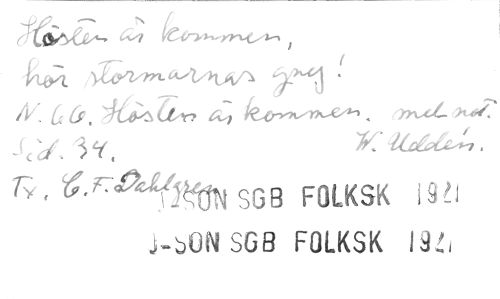 Hösten är kommen,
hör stormarnas gny!
N. 66. Hösten är kommen. mel. not.
Sid. 34. W. Uddén.
Tx. C. F. Dahlgren
J-SON SGB FOLKSK 1921
J-SON SGB FOLKSK 1921